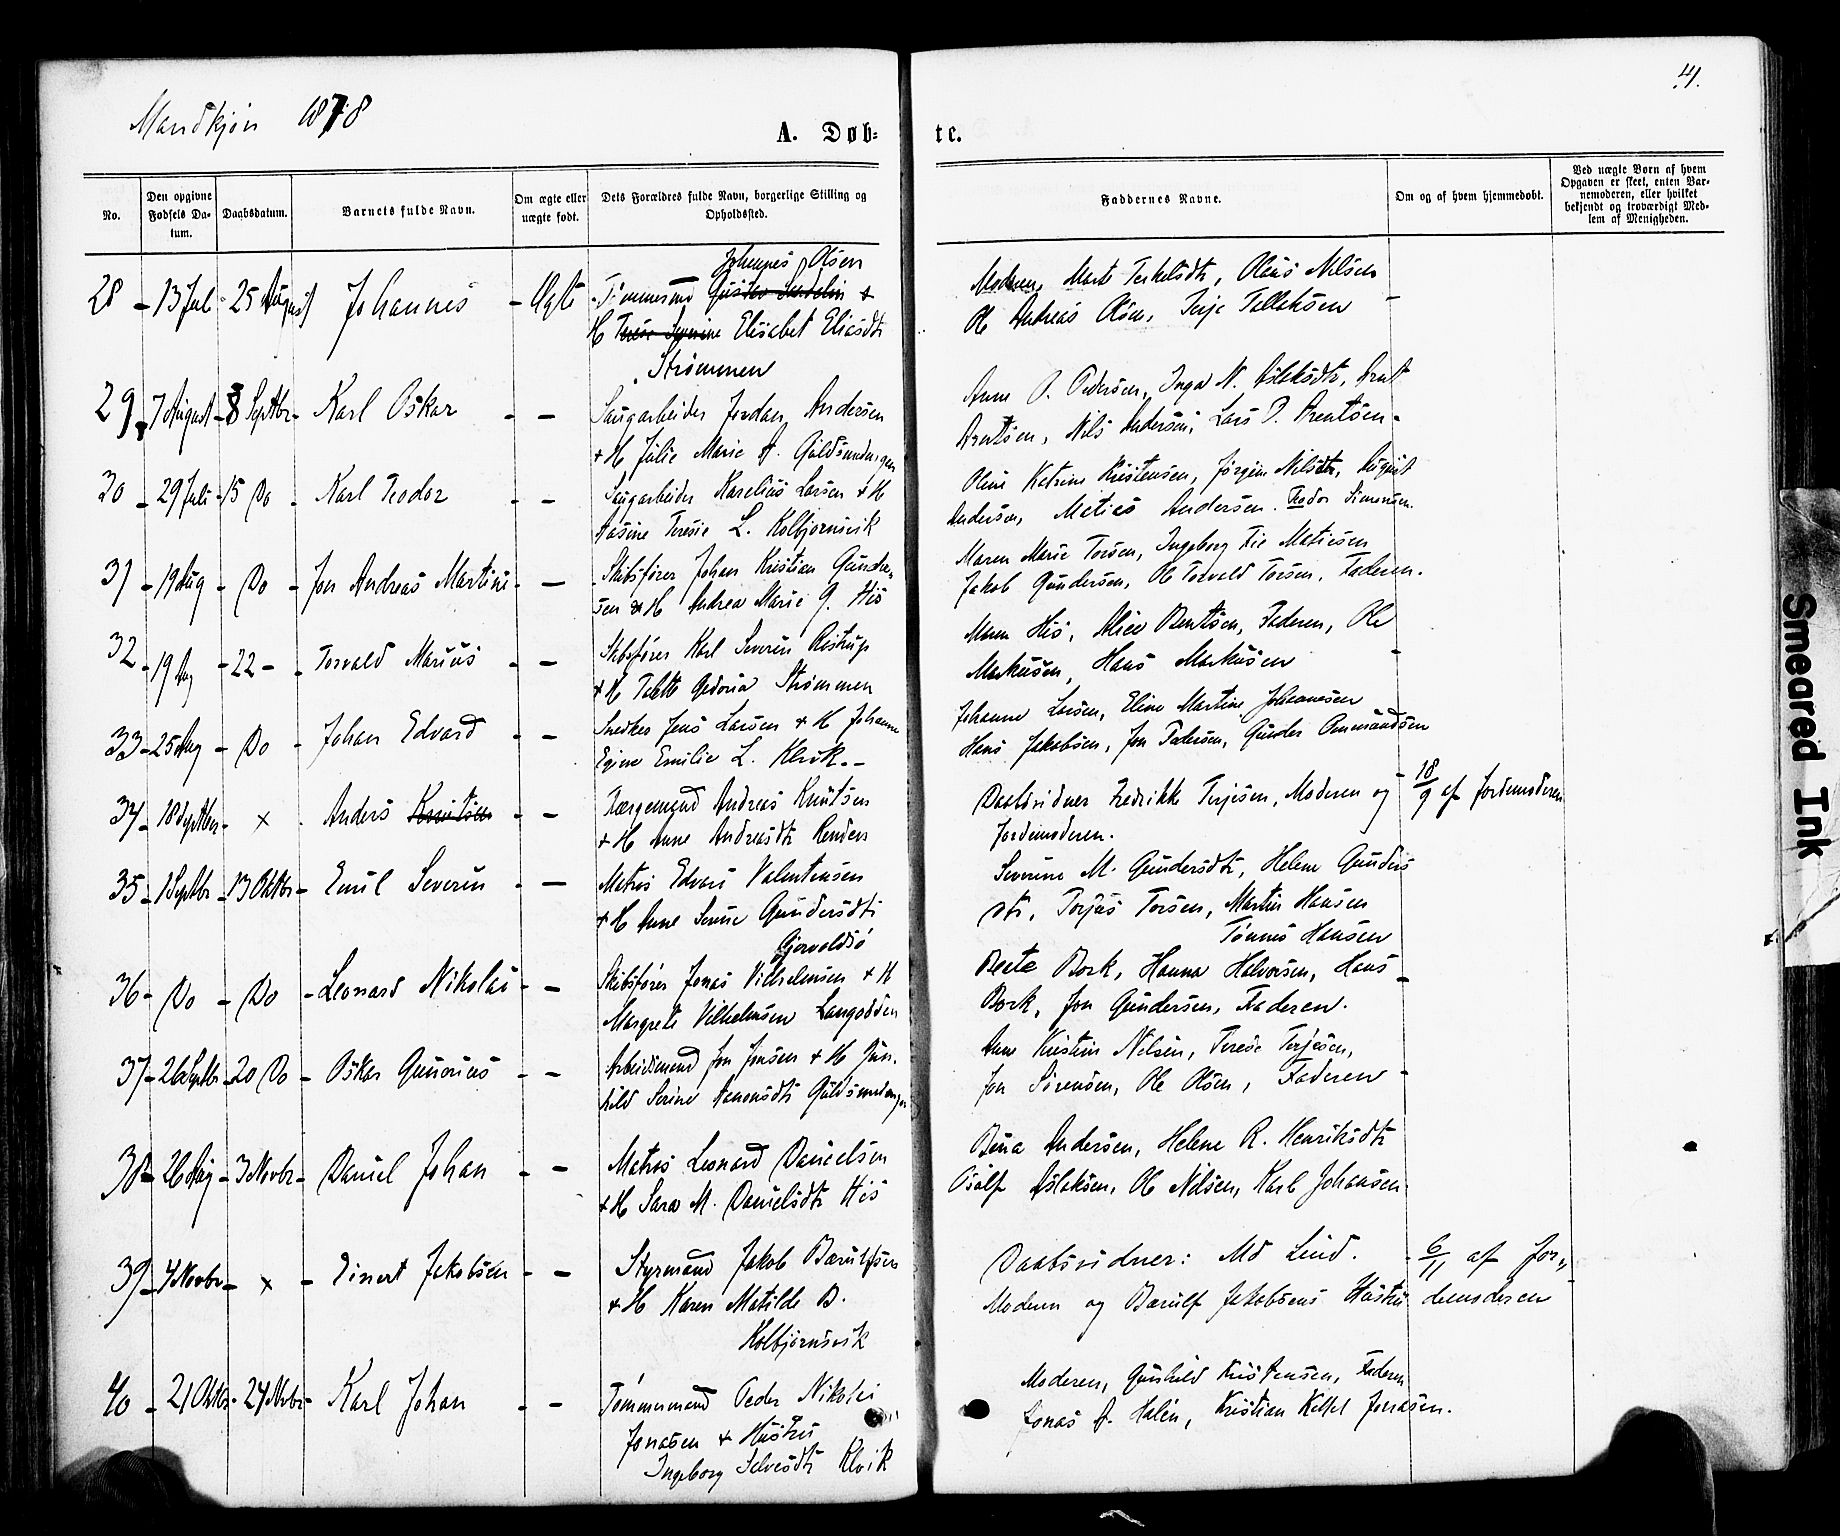 Mandkjøn 1878
4.
A. Døb-
te.
No.
Den opgivne Fødsels Da-tum.
Daabsdatum.
Barnets fulde Navn.
Om ægte eller uægte født.
Dets Forældres fulde Navn, borgerlige Stilling og Opholdssted.
Faddernes Navne.
Om og af hvem hjemmedøbt.
Ved uægte Børn af hvem Opgaven er skeet, enten Bar-nemoderen, eller hvilket bekjendt og troværdigt Med-lem af Menigheden.
Johannes Olsen
28 - 13 Jul - 25 August Johannes - Ægte - Tømmermand Gustav &
H Elisabet Eliasdtr
Strømmen
Moderen, Marte Terkelsdtr, Olaus Nilsen
Ole Andreas Olsen, Terje Tellefsen -
29 - 7 August - 8 Septbr - Karl Oskar - - Saugarbeider Jordan Andersen
+ H Julie Marie A. Guldsmedengen
Anne O. Pedersen, Inga N. Aslaksdtr, Arnt
Arentsen, Nils Andersen, Lars P. Arentsen -
30 - 29 Juli - 15 Do - Karl Teodor - - Saugarbeider Karelius Larsen + H
Aasine Teresie L. Kolbjørnsvik
Oline Katrine Kristensen, Jørgine Nilsdtr, August
Andersen, Matias Andersen. Teodor Simonsen.
31 - 19 Aug - Do - Jon Andreas Martinius - - Skibsfører Johan Kristian Gunder-
sen & H Andrea Marie G. His
Maren Marie Torsen, Ingeborg Fie Matiesen
Jakob Gundersen, Ole Torvald Torsen, Faderen.
32 - 19 Aug - 22 - - Torvald Marius - - Skibsfører Karl Severin Rostrup
+ H Strømmen
Maren His, Alice Berntsen, Faderen, Ole
Markusen, Hans Markusen -
33 - 25 Aug - Do - Johan Edvard - - Snedker Jens Larsen + H Johanne
Emilie L. Klevik. -
Johanne Larsen, Eline Martine Johannesen
Hans Jakobsen, Jon Pedersen, Gunder Ommundsen
34 - 18 Septbr - x - Anders Knutsen - - Færgemand Andreas Knutsen
+ H Anne Andreasdtr Renden
Daabsvidner Fredrikke Terjesen, Moderen og
Jordemoderen.
- 18/9 af Jordemoderen
35 - 1 Septbr - 13 Oktbr - Emil Severin - - Matros Edvart Valentinsen
+ H Anne Serine Gundersdtr
Gjervoldsø
Severine M. Gundersdtr, Helene Gunders
dtr, Torjus Torsen, Martin Hansen
Tønnes Hansen
36 - Do - Do - Leonard Nikolai - - Skibsfører Jonas Vilhelmsen + H
Margrete Vilhelmsen Langodden
Beate Bork, Hanna Halvorsen, Hans -
Bork, Jon Gundersen, Faderen.
37 - 26 Septbr - 20 Do - Oskar Gunerius - - Arbeidsmand Jon Jonsen + H Gun-
hild Serine Aanonsdtr Guldsmedengen
Ane Kristine Nilsen, Terese Terjesen,
Jon Sørensen, Ole Olsen, Faderen -
38 - 26 Aug - 3 Novbr - Daniel Johan - - Matros Leonard Danielsen
+ H Sara M. Danielsdtr His
Bina Andersen, Helene R. Henriksdtr
Osulf Aslaksen, Ole Nilsen, Karl Johansen
39 - 4 Novbr - x - Einert Jakobsen - - Styrmand Jakob Barulfsen
+ H Karen Matilde B.
Kolbjørnsvik
Daabsvidner: Md Lind.
Moderen og Barulf Jakobsens Hustru
- 6/11 af Jor-
demoderen
40 - 21 Oktbr - 24 Novbr - Karl Johan - - Tømmermand Peder Nikolai
Jonasen + Hustru
Ingeborg Selvesdtr Klevik
Moderen, Gunhild Kristensen, Faderen
Jonas A. Halén, Kristian Kittel Jonasen.
Smeared Ink